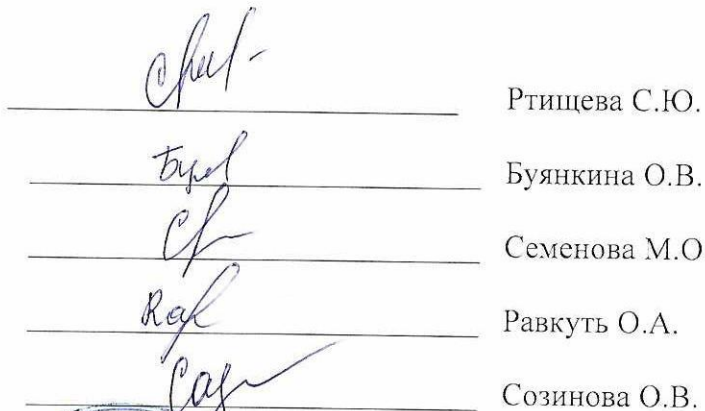 Ртищева С.Ю.
Буянкина О.В.
Семенова М.О
Равкуть О.А.
Созинова О.В.